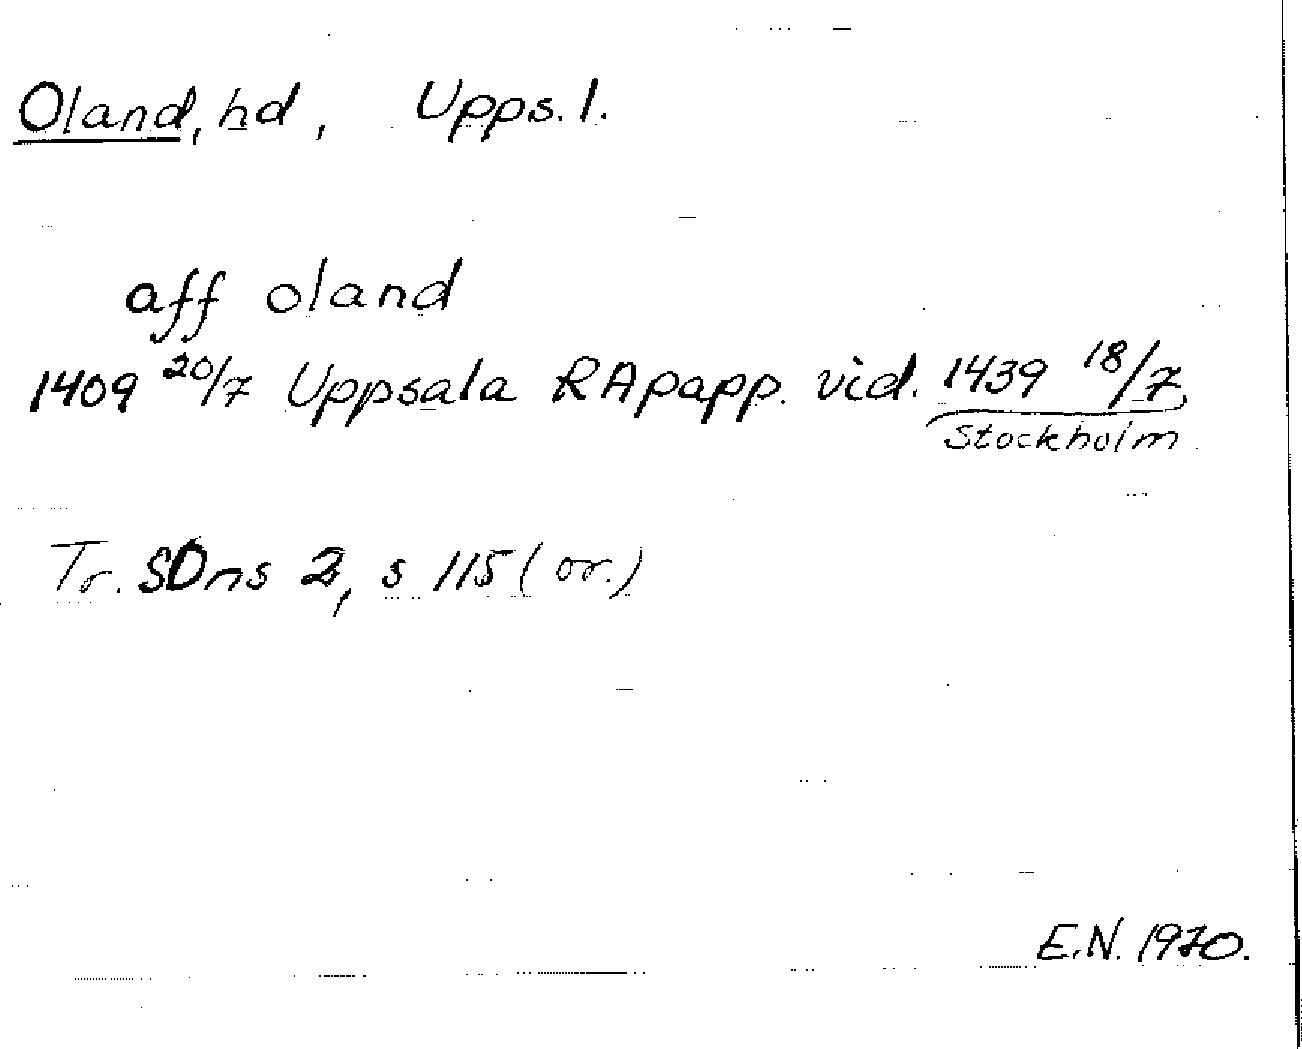 Oland, hd, Upps. l.
aff oland
1409 20/7 Uppsala RApapp. vid. 1439 18/7
Stockholm
Tr. SDns 2, s 115 (or.)
E.N. 1970.